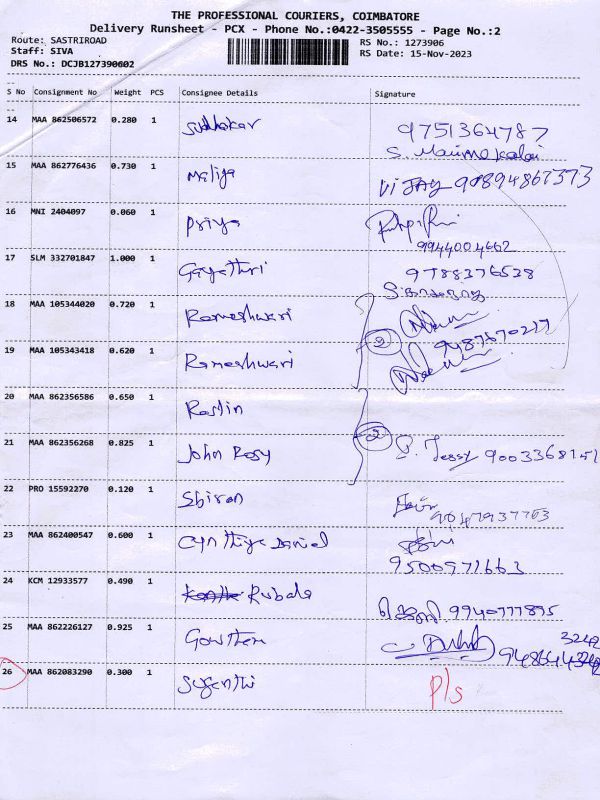 THE PROFESSIONAL COURIERS, COIMBATORE
Delivery Runsheet - PCX - Phone No.:0422-3505555 - Page No.:2
Route: SASTRIROAD
Staff: SIVA
DRS No.: DCJB127390602
RS No.: 1273906
RS Date: 15-Nov-2023
S No Consignment No Weight PCS Consignee Details Signature
14 MAA 862506572 0.280 1 Sudhakar 9751364787
S.
15 MAA 862776436 0.730 1 Maliga VIJAY 90894867373
16 MNI 2404097 0.060 1 Priya
9944004662
17 SLM 332701847 1.000 1 Gayathri 9788376538
18 MAA 105344020 0.720 1 Rameshwari
2 9487570217
19 MAA 105343418 0.620 1 Rameshwari
20 MAA 862356586 0.650 1 Roslin
2
21 MAA 862356268 0.825 1 John Rosy P. Jessy 9003368151
22 PRO 15592270 0.120 1
23 MAA 862400547 0.600 1 Cynthiya Daniel
9500971663
24 KCM 12933577 0.490 1 Rubala 9940777895
25 MAA 862226127 0.925 1 Gowtham
3242
26 MAA 862083290 0.300 1 Suganthi P/s